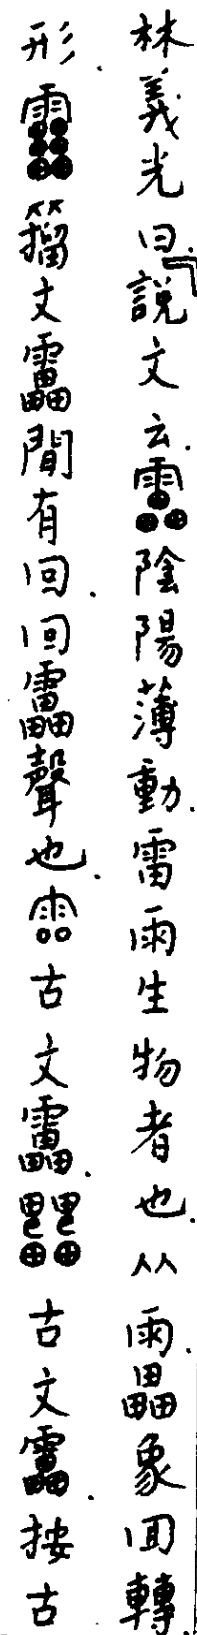 林義光曰「說文云靁陰陽薄動雷雨生物者也从雨畾象回轉
形籀文靁間有回回靁聲也古文靁古文靁按古